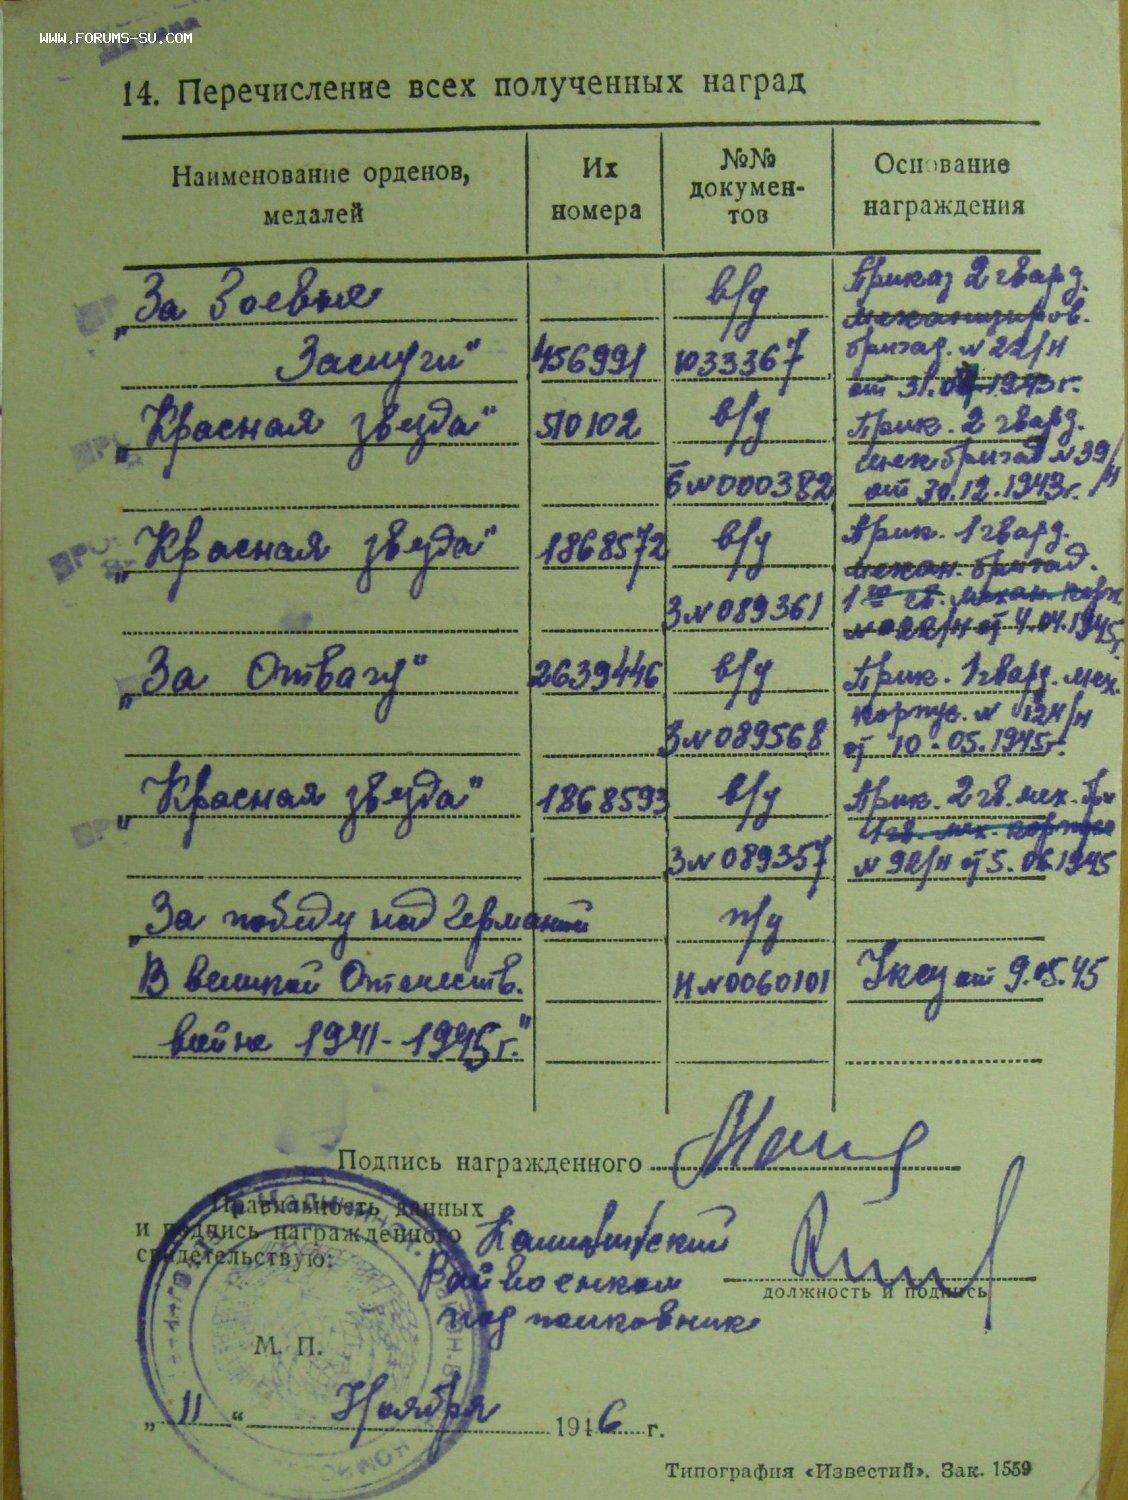 WWW.FORUMS-SU.COM
14. Перечисление всех полученных наград
Наименование орденов, медалей
Их номера
№№ документов
Основание награждения
„За Боевые
в/д
Приказ 2 гвард.
механизиров.
Заслуги"
456991
Ю33367
бригад. № 22/н
от 31. 1943 г.
„Красная звезда"
510102
в/д
Прик. 2 гвард.
мех бригад № 39/н
Б №000382
от 30.12.1943 г.
„Красная звезда"
1868572
в/д
Прик. 1 гвард.
механ. бригад.
З №089361
1го гв. механ. корп.
№ 022/н от 4.04.1945 г.
„За Отвагу"
2639446
в/д
Прик. 1 гвард. мех.
корпус. № 12н/н
З №089568
от 10.05.1945 г.
„Красная звезда"
1868593
в/д
Прик. 2 гв. мех. бри
1 гв. мех. корпуса
З №089357
№ 92/н от 5.06.1945
„За победу над Германией
п/у
В великой Отечеств.
Н №0060101
Указ от 9.05.45
войне 1941-1945 г."
Подпись награжденного
Правильность данных
и подпись награжденного
свидетельствую:
Райвоенком
подполковник
должность и подпись
М. П.
„ 11 “ Ноября 1946 г.
Типография «Известий». Зак. 1559